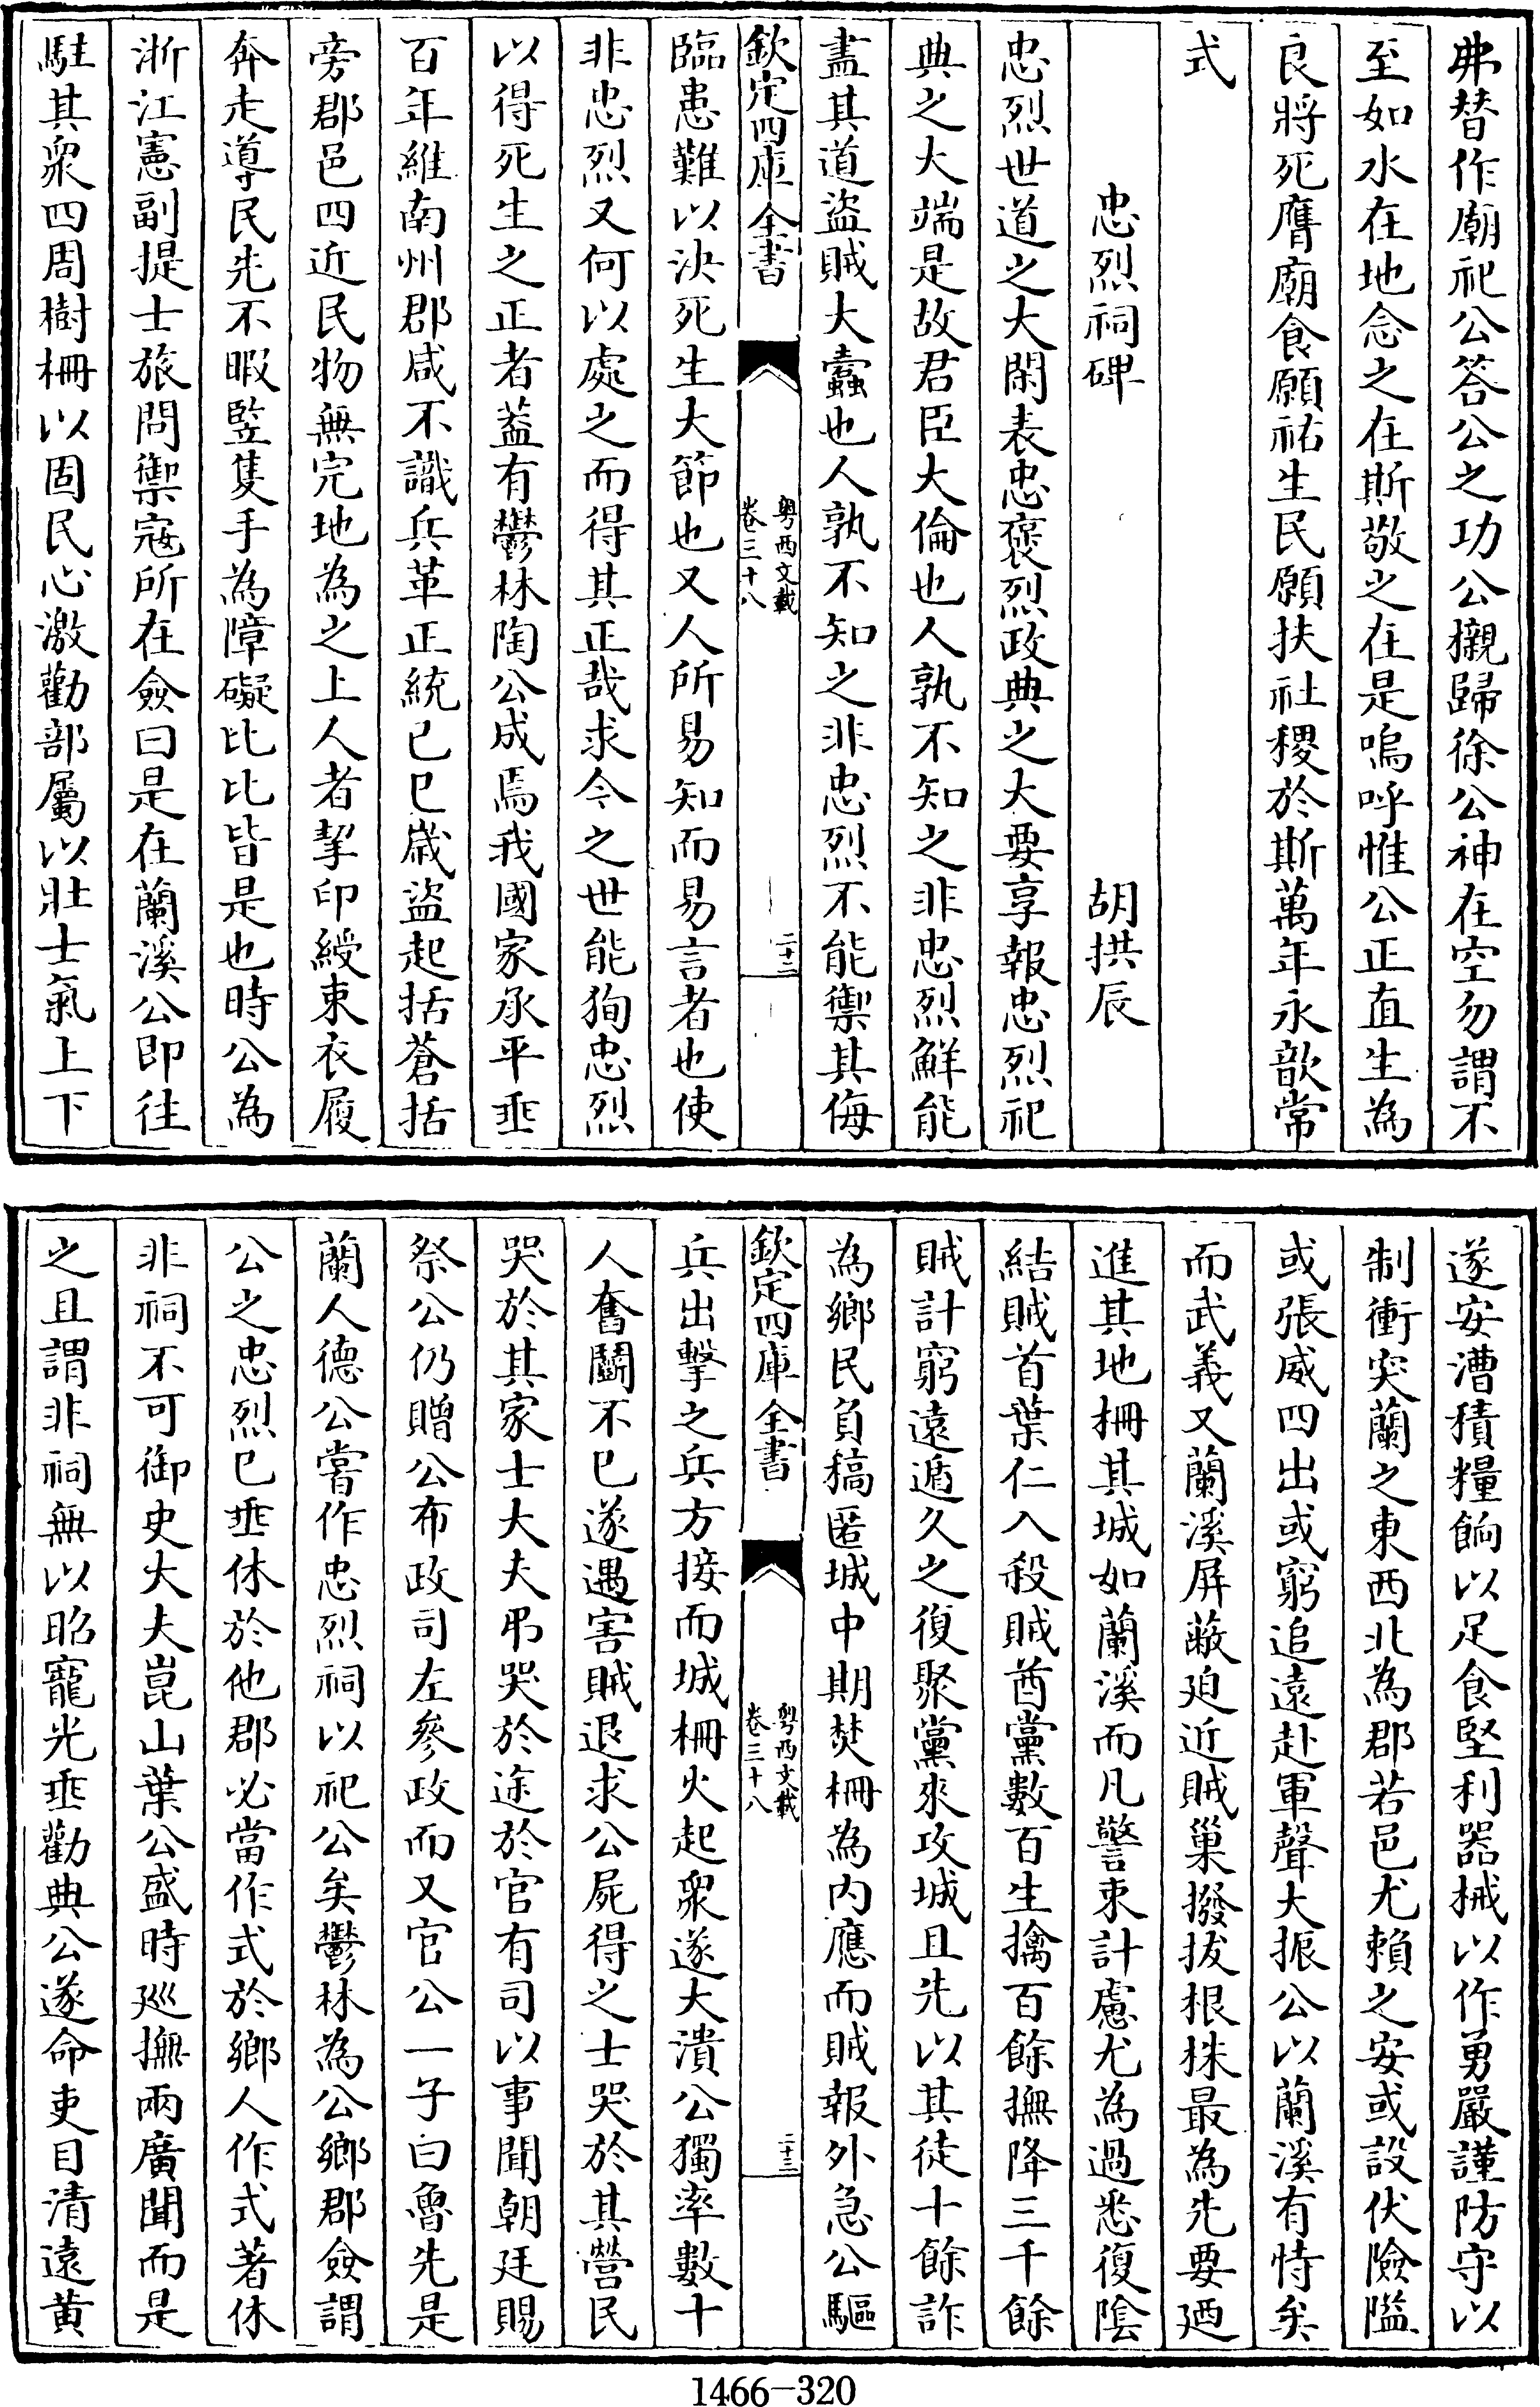 弗替作廟祀公答公之功公櫬歸徐公神在空勿謂不
至如水在地念之在斯敬之在是嗚呼惟公正直生為
良將死膺廟食願祐生民願扶社稷於斯萬年永歆常
式
忠烈祠碑 胡拱辰
忠烈世道之大閑表忠褒烈政典之大要享報忠烈祀
典之大端是故君臣大倫也人孰不知之非忠烈鮮能
盡其道盜賊大蠹也人孰不知之非忠烈不能禦其侮
欽定四庫全書 粤西文載 卷三十八 二十三
臨患難以決死生大節也又人所易知而易言者也使
非忠烈又何以處之而得其正哉求今之世能狥忠烈
以得死生之正者葢有鬱林陶公成焉我國家承平垂
百年維南州郡咸不識兵革正統已巳歳盜起括蒼括
旁郡邑四近民物無完地為之上人者挈印綬束衣履
奔走導民先不暇豎隻手為障礙比比皆是也時公為
浙江憲副提士旅問禦寇所在僉曰是在蘭溪公即往
駐其衆四周樹柵以固民心激勸部屬以壯士氣上下
遂安漕積糧餉以足食堅利器械以作勇嚴謹防守以
制衝突蘭之東西北為郡若邑尤賴之安或設伏險隘
或張威四出或窮追遠赴軍聲大振公以蘭溪有恃矣
而武義又蘭溪屏蔽廹近賊巢撥拔根株最為先要廼
進其地柵其城如蘭溪而凡警束計慮尤為過悉復陰
結賊首葉仁入殺賊酋黨數百生擒百餘撫降三千餘
賊計窮遠遁久之復聚黨來攻城且先以其徒十餘詐
為鄉民負稿匿城中期焚柵為内應而賊報外急公驅
欽定四庫全書 粤西文載 卷三十八 二十三
兵出擊之兵方接而城柵火起衆遂大潰公獨率數十
人奮鬭不已遂遇害賊退求公屍得之士哭於其營民
哭於其家士大夫弔哭於途於官有司以事聞朝廷賜
祭公仍贈公布政司左參政而又官公一子曰魯先是
蘭人德公嘗作忠烈祠以祀公矣鬱林為公鄉郡僉謂
公之忠烈已垂休於他郡必當作式於鄉人作式著休
非祠不可御史大夫崑山葉公盛時廵撫兩廣聞而是
之且謂非祠無以昭寵光垂勸典公遂命吏目清遠黄
1466-320